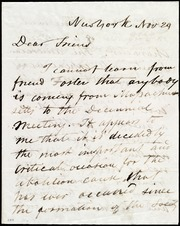 New York Nov 29
Dear Friend
I cannot learn from
friend Foster that anybody
is coming from Massachu
setts to the Decennial
Meeting. It appears to
me that it is decidedly
the most important and
critical occasion for the
abolition cause that
has ever occurred since
the formation of the